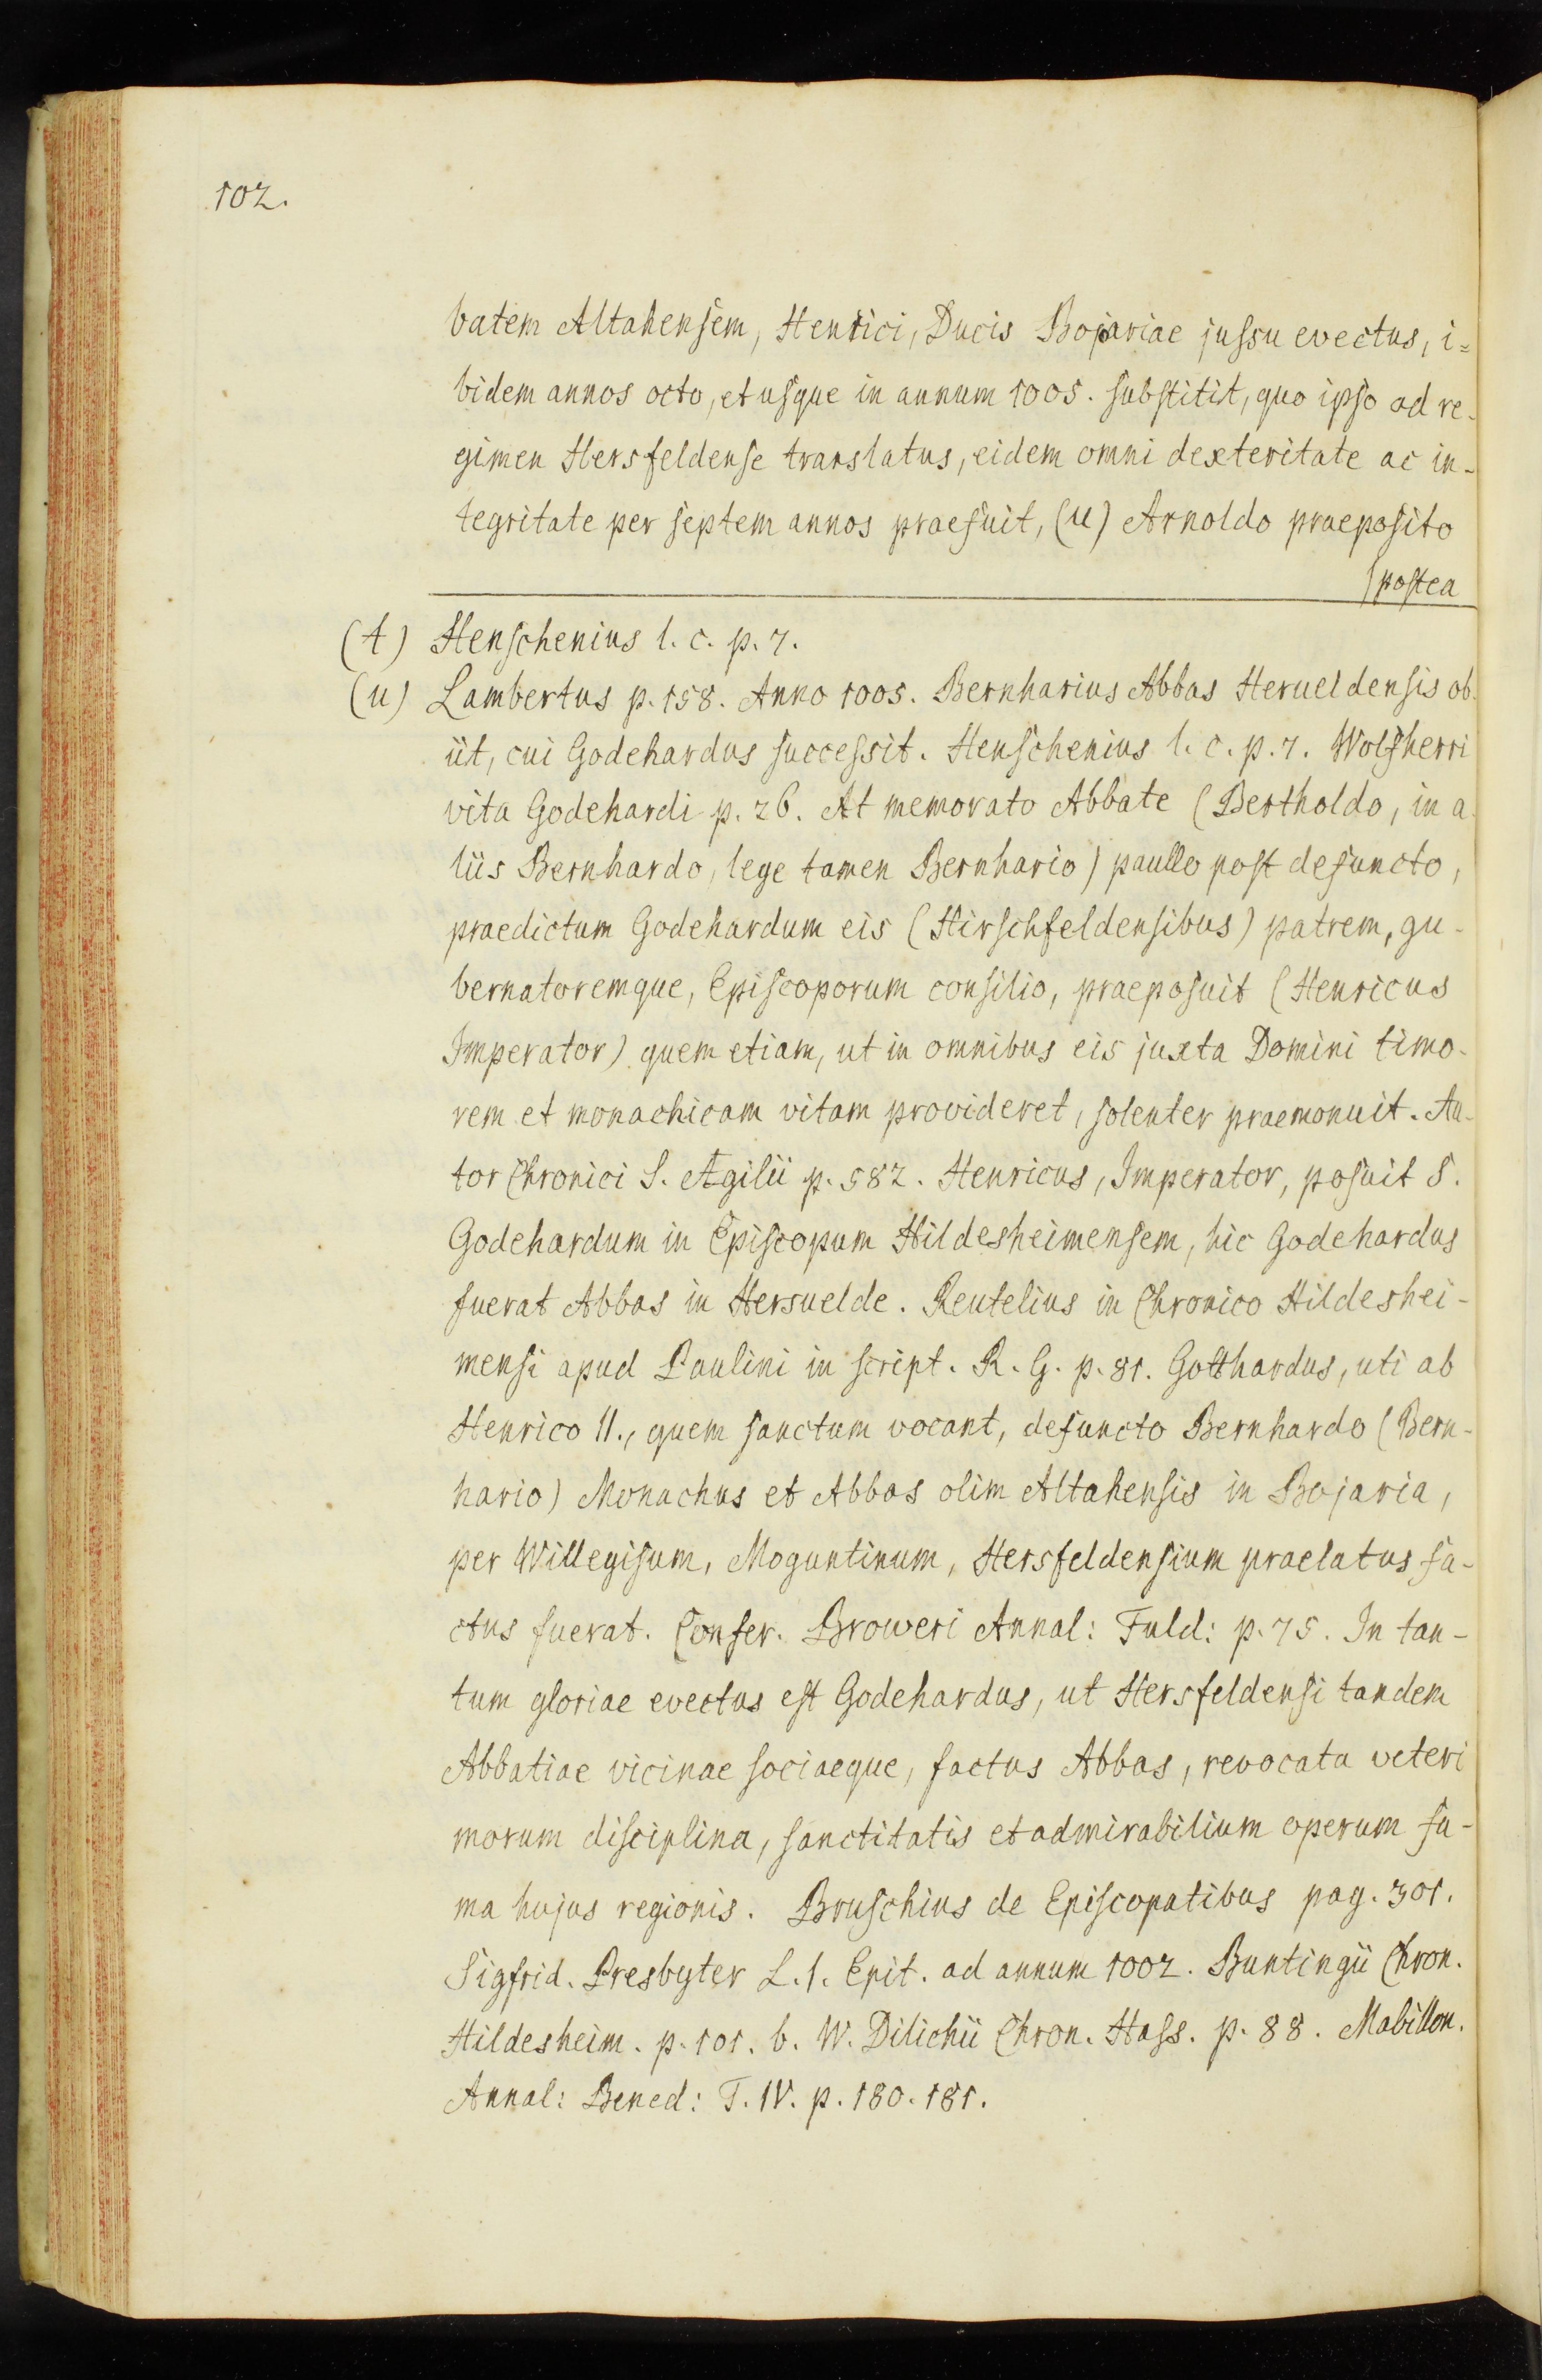 102.
batem Altahensem, Henrici, Ducis Bojariae jussu evectus, i=
bidem annos octo, et usque in annum 1005. substitit, quo ipso ad re-
gimen Hersfeldense translatus, eidem omni dexteritate ac in-
tegritate per septem annos praefuit, (u) Arnoldo praeposito
postea
(t) Henschenius l. c. p. 7.
(u) Lambertus p. 158. Anno 1005. Bernharius Abbas Herueldensis ob-
iit, cui Godehardus successit. Henschenius l. c. p. 7. Wolfherri
vita Godehardi p. 26. At memorato Abbate (Bertholdo, in a-
liis Bernhardo, lege tamen Bernhario) paullo post defuncto,
praedictum Godehardum eis (Hirschfeldensibus) patrem, gu-
bernatoremque, Episcoporum consilio, praeposuit (Henricus
Imperator) quem etiam, ut in omnibus eis juxta Domini timo-
rem et monachicam vitam provideret, solenter praemonuit. Au-
tor Chronici S. Ægilii p. 582. Henricus, Imperator, posuit S.
Godehardum in Episcopum Hildesheimensem, hic Godehardus
fuerat Abbas in Hersuelde. Reutelius in Chronico Hildeshei-
mensi apud Paulini in script. R. G. p. 81. Gotthardus, uti ab
Henrico II., quem sanctum vocant, defuncto Bernhardo (Bern-
hario) Monachus et Abbas olim Altahensis in Bojaria,
per Willegisum, Moguntinum, Hersfeldensium praelatus fa-
ctus fuerat. Confer. Broweri Annal: Fuld: p. 75. In tan-
tum gloriae evectus est Godehardus, ut Hersfeldensi tandem
Abbatiae vicinae sociaeque, factus Abbas, revocata veteri
morum disciplina, sanctitatis et admirabilium operum fa-
ma hujus regionis. Bruschius de Episcopatibus pag. 301.
Sigfrid. Presbyter L. 1. Epit. ad annum 1002. Buntingii Chron.
Hildesheim. p. 101. b. W. Dilichii Chron. Hass. p. 88. Mabillon.
Annal: Bened: T. IV. p. 180. 181.